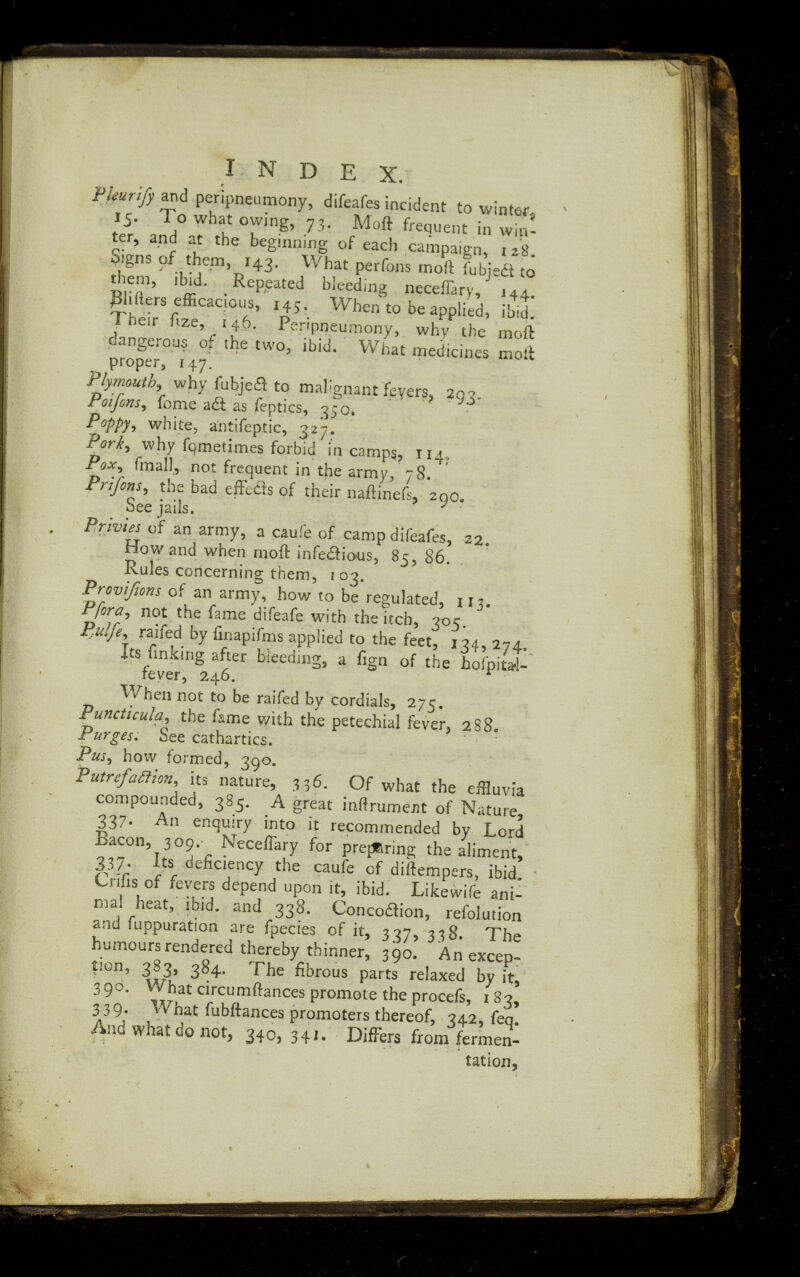 INDEX.
Pleurisy and peripneumony, diſeaſes incident to winter,
15. To what owing, 73. Moſt frequent in win-
ter, and at the beginning of each campaign, 128.
Signs of them, 143. What perſons moſt ſubject to
them, ibid. Repeated bleeding neceſſary, 144.
Bliſters efficacious, 145. When to be applied, ibid.
Their ſize, 146. Peripneumony, why the moſt
dangerous of the two, ibid. What medicines moſt
proper, 147.
Plymouth, why ſubject to malignant fevers, 293.
Poiſons, ſome act as ſeptics, 350.
Poppy, white, antiſeptic, 327.
Pork, why ſometimes forbid in camps, 114.
Pox, ſmall, not frequent in the army, 78.
Priſons, the bad effects of their naſtineſs, 290.
See jails.
Privies of an army, a cauſe of camp diſeaſes, 22.
How and when moſt infectious, 85, 86.
Rules concerning them, 103.
Proviſions of an army, how to be regulated, 113.
Pſora, not the ſame diſeaſe with the itch, 305.
Pulſe, raiſed by ſinapiſms applied to the feet, 134, 274.
Its ſinking after bleeding, a ſign of the hoſpital-
fever, 246.
When not to be raiſed by cordials, 275.
Puncticula, the ſame with the petechial fever, 288.
Purges. See cathartics.
Pus, how formed, 390.
Putrefaction, its nature, 336. Of what the effluvia
compounded, 385. A great inſtrument of Nature,
337. An enquiry into it recommended by Lord
Bacon, 309. Neceſſary for preparing the aliment,
337. Its deficiency the cauſe of diſtempers, ibid.
Criſis of fevers depend upon it, ibid. Likewiſe ani-
mal heat, ibid. and 338. Concoction, reſolution
and ſuppuration are ſpecies of it, 337, 338. The
humours rendered thereby thinner, 390. An excep-
tion, 383, 384. The fibrous parts relaxed by it,
390. What circumſtances promote the proceſs, 183,
339. What ſubſtances promoters thereof, 342, ſeq.
And what do not, 340, 341. Differs from fermen-
tation,